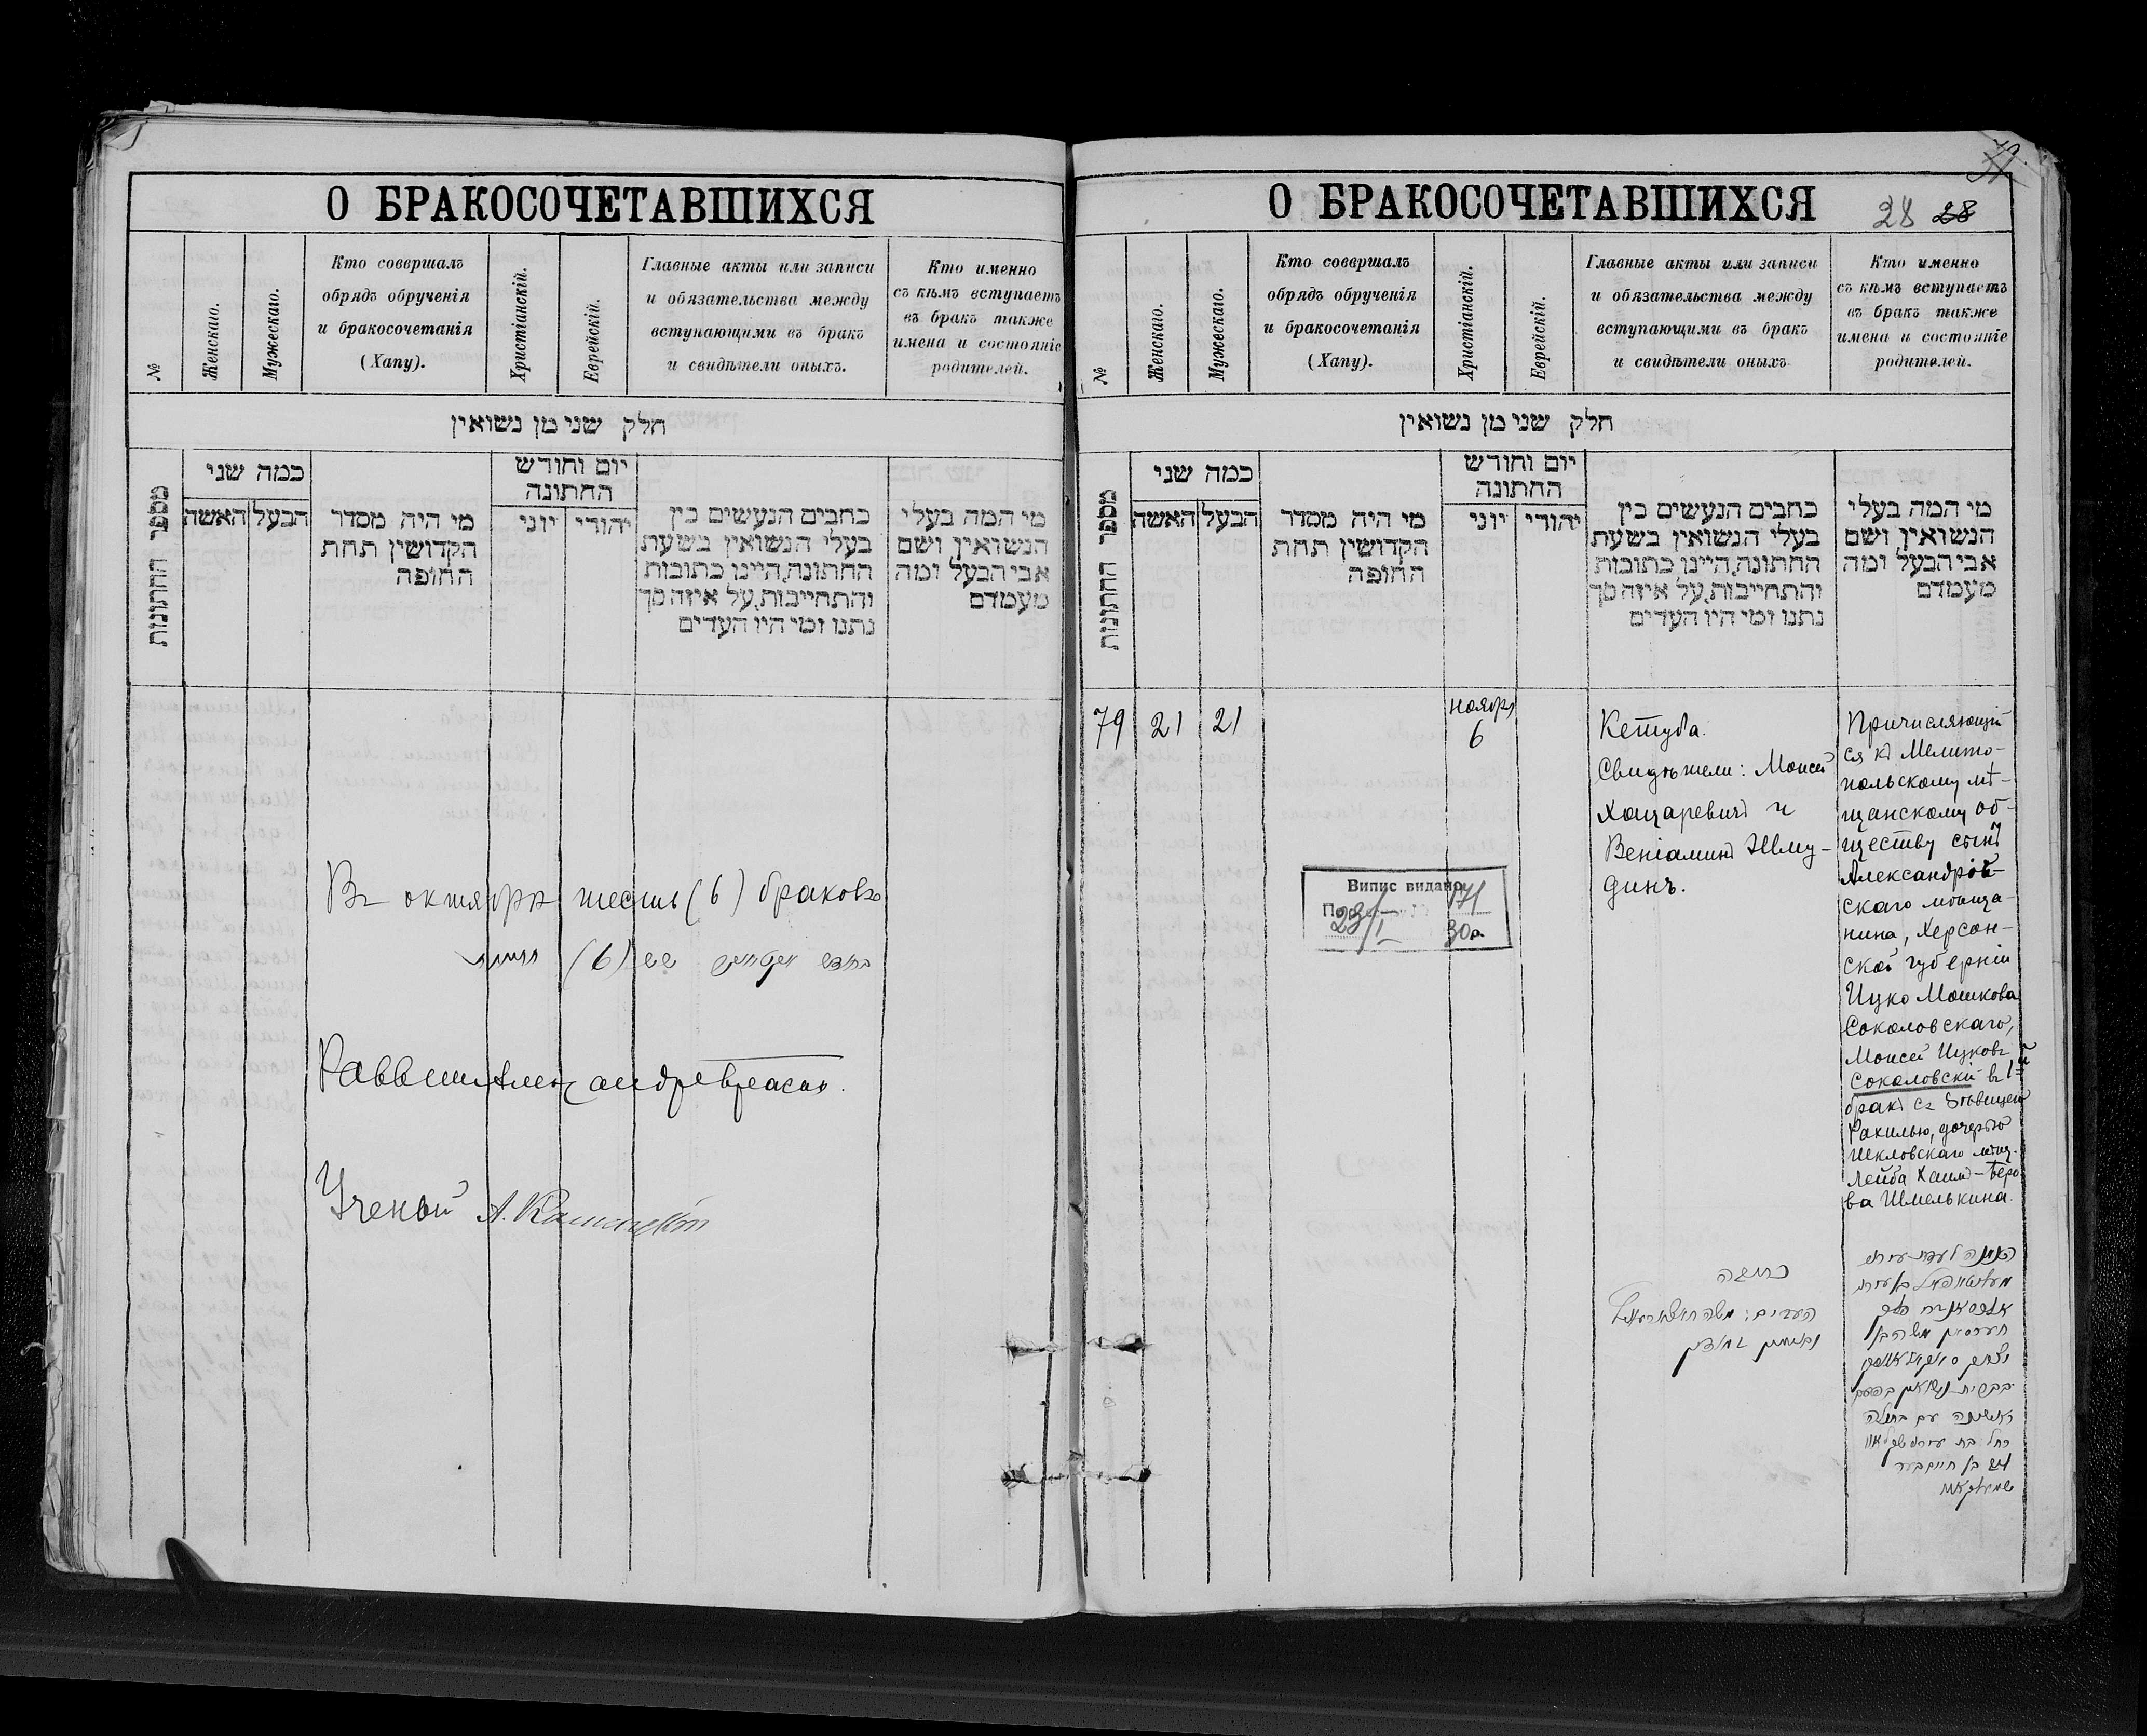 О БРАКОСОЧЕТАВШИХСЯ
№
Женскаго.
Мужескаго.
Кто совершалъ
обрядъ обрученія
и бракосочетанія
(Хапу).
Христіанскій.
Еврейскій.
Главные акты или записи
и обязательства между
вступающими въ бракъ
и свидѣтели оныхъ.
Кто именно
съ кѣмъ вступаетъ
въ бракъ также
имена и состояніе
родителей.
חלק שני מן נשואין
מספר החתונות
כמה שני
האשה
הבעל
מי היה מסדר
הקדושין תחת
החופה
יום וחודש
החתונה
יוני
יהודי
כתבים הנעשים בין
בעלי הנשואין בשעת
החתונה, היינו כתובות
והתחייבות, על איזה סך
נתנו ומי היו העדים
מי המה בעלי
הנשואין ושם
אבי הבעל ומה
מעמדם
Въ октябрѣ шесть (6) браковъ
(6) שש
Раввинъ
Ученый А.
О БРАКОСОЧЕТАВШИХСЯ
28 28
№
Женскаго.
Мужескаго.
Кто совершалъ
обрядъ обрученія
и бракосочетанія
(Хапу).
Христіанскій.
Еврейскій.
Главные акты или записи
и обязательства между
вступающими въ бракъ
и свидѣтели оныхъ
Кто именно
съ кѣмъ вступаетъ
въ бракъ также
имена и состояніе
родителей.
חלק שני מן נשואין
מספר החתונות
כמה שני
האשה
הבעל
מי היה מסדר
הקדושין תחת
החופה
יום וחודש
החתונה
יוני
יהודי
כתבים הנעשים בין
בעלי הנשואין בשעת
החתונה, היינו כתובות
והתחייבות, על איזה סך
נתנו ומי היו העדים
מי המה בעלי
הנשואין ושם
אבי הבעל ומה
מעמדם
79
21
21
ноябр.
6
Випис видано
171
23/I
30р
Кетуба.
Свидѣтели: Моисей
Хацаревичъ и
Веніаминъ Шму-
динъ.
כתובה
העדים: משה
Причисляющій
ся къ Мелито-
польскому мѣ-
щанскому об-
ществу сынъ
Александров-
скаго мѣща-
нина, Херсон-
ской губерніи
Ицко Мошкова
Соколовскаго,
Моисей Ицковъ
Соколовскій въ 1й
бракъ съ дѣвицей
Рахилью, дочерью
Шкловскаго мѣщ.
Лейба Хаимъ-Беро-
ва Шмелькина.